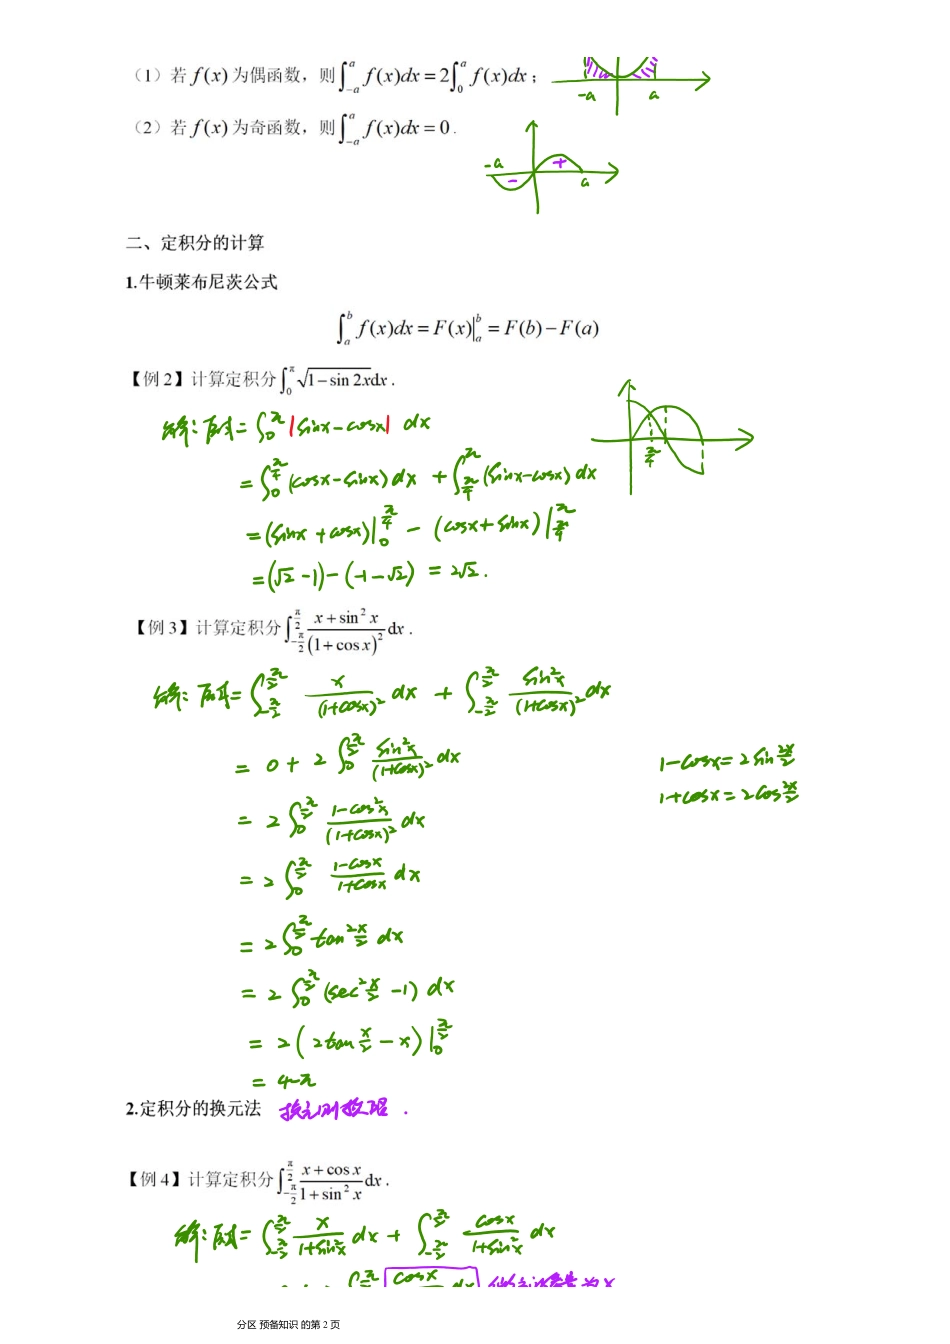 （1）若 f(x) 为偶函数，则 ∫_{-a}^{a} f(x)dx = 2∫_{0}^{a} f(x)dx ；
-a a
（2）若 f(x) 为奇函数，则 ∫_{-a}^{a} f(x)dx = 0 .
-a - + a
二、定积分的计算
1.牛顿莱布尼茨公式
∫_{a}^{b} f(x)dx = F(x)|_{a}^{b} = F(b) − F(a)
【例 2】计算定积分 ∫_{0}^{π} √(1 − sin 2x) dx .
解：原式 = ∫_{0}^{π} |sinx − cosx| dx
= ∫_{0}^{π/4} (cosx − sinx) dx + ∫_{π/4}^{π} (sinx − cosx) dx
π/4
= (sinx + cosx)|_{0}^{π/4} − (cosx + sinx)|_{π/4}^{π}
= (√2 − 1) − (−1 − √2) = 2√2 .
【例 3】计算定积分 ∫_{-π/2}^{π/2} (x + sin² x)/(1 + cos x)² dx .
解：原式 = ∫_{-π/2}^{π/2} x/(1+cosx)² dx + ∫_{-π/2}^{π/2} sin²x/(1+cosx)² dx
= 0 + 2 ∫_{0}^{π/2} sin²x/(1+cosx)² dx
1 − cosx = 2 sin² x/2
1 + cosx = 2 cos² x/2
= 2 ∫_{0}^{π/2} (1 − cos²x)/(1+cosx)² dx
= 2 ∫_{0}^{π/2} (1 − cosx)/(1+cosx) dx
= 2 ∫_{0}^{π/2} tan² x/2 dx
= 2 ∫_{0}^{π/2} (sec² x/2 − 1) dx
= 2 ( 2tan x/2 − x )|_{0}^{π/2}
= 4 − π
2.定积分的换元法 换元则换限 .
【例 4】计算定积分 ∫_{-π/2}^{π/2} (x + cos x)/(1 + sin² x) dx .
解：原式 = ∫_{-π/2}^{π/2} x/(1+sin²x) dx + ∫_{-π/2}^{π/2} cosx/(1+sin²x) dx
cosx dx
分区 预备知识 的第 2 页